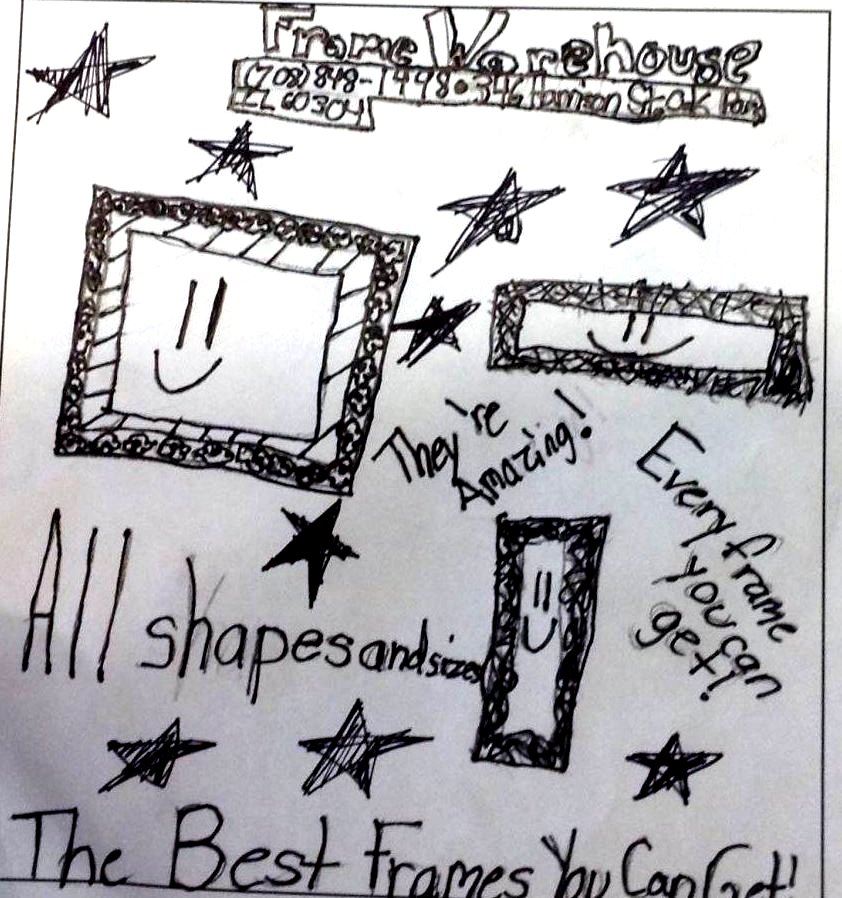 Frame Warehouse
(708) 848-1998 • 346 Harrison St Oak Park
IL 60304
They're
Amazing!
Every frame
you can
get!
All shapes and sizes
The Best Frames You Can Get!